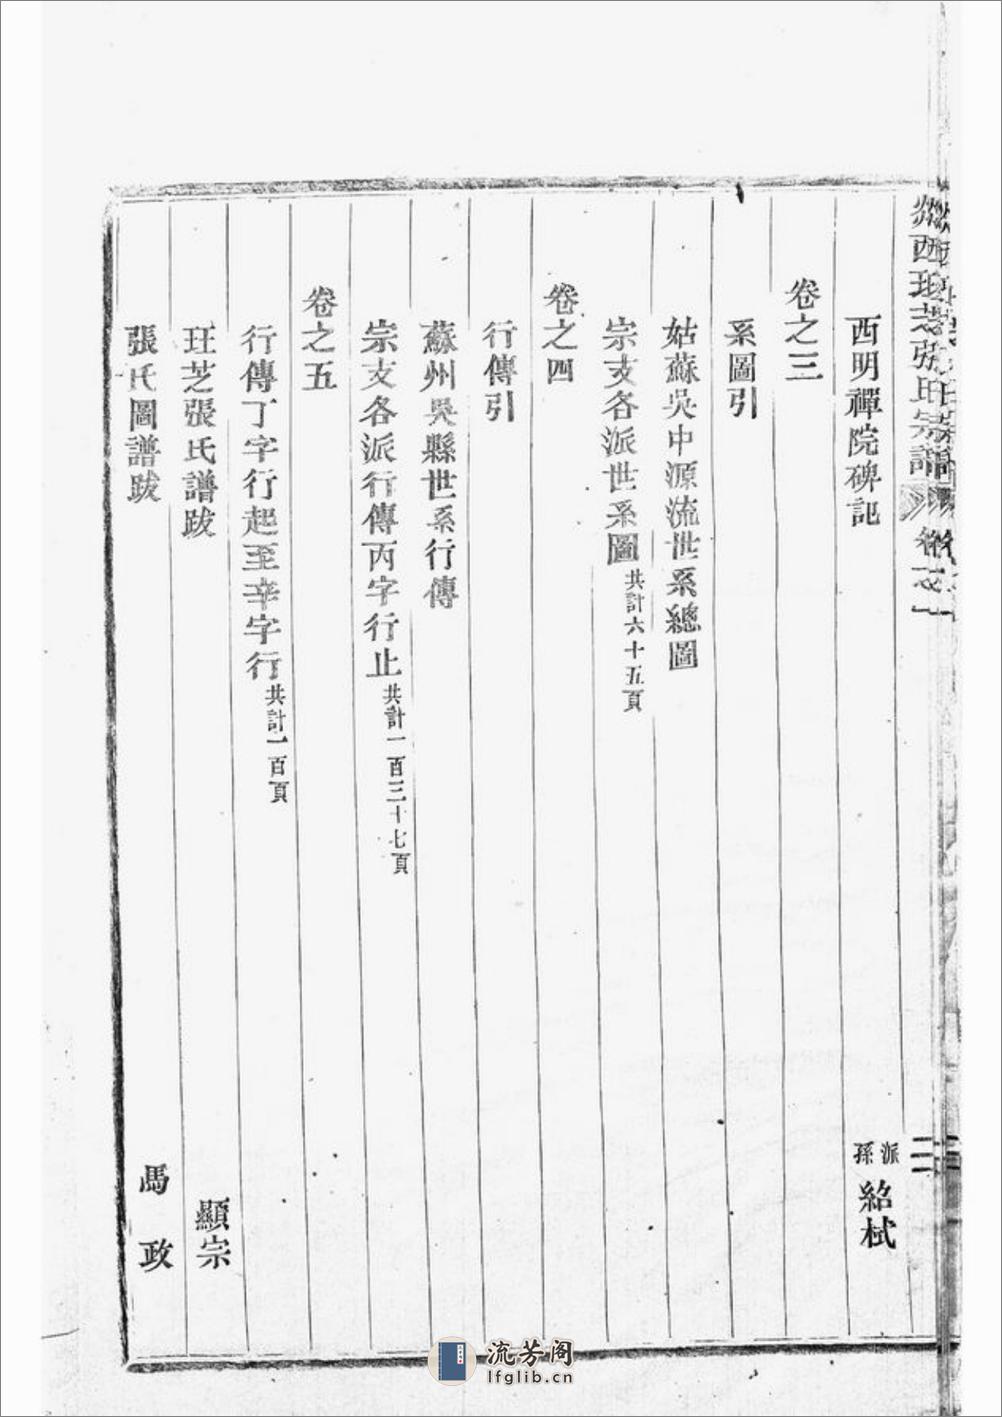 西明禪院碑記 派孫 紹栻
卷之三
系圖引
姑蘇吳中源流世系總圖
宗支各派世系圖 共計六十五頁
卷之四
行傳引
蘇州吳縣世系行傳
宗支各派行傳丙字行止 共計一百三十七頁
卷之五
行傳丁字行起至辛字行 共計一百頁
玨芝張氏譜跋 顯宗
張氏圖譜跋 馬政
流芳阁
lfglib.cn